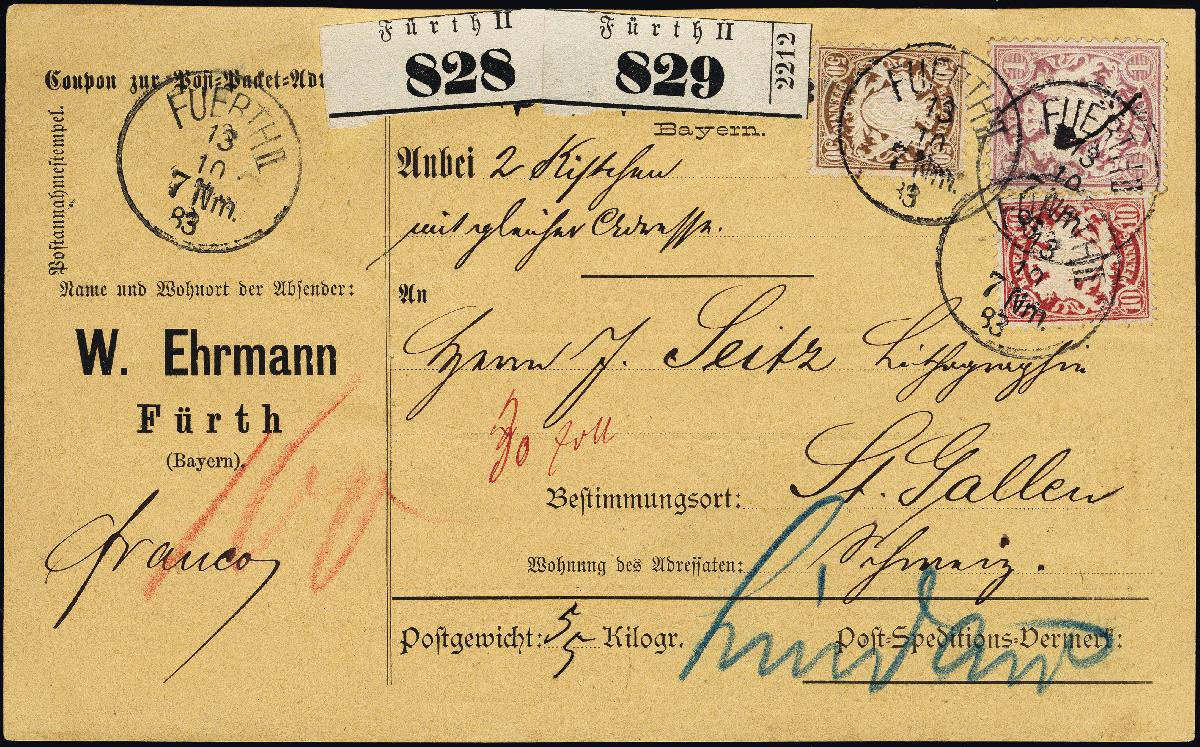 Fürth II
828
Fürth II
829
2212
Coupon zur Post-Packet-Adr
Bayern.
Postannahmestempel.
FUERTH II
13
10
7 Nm.
83
FUERTH II
13
10
7 Nm.
83
FUERTH II
13
10
7 Nm.
83
FUERTH II
13
10
7 Nm.
83
50
10
10
Anbei 2 Kistchen
mit gleicher Adresse.
Name und Wohnort der Absender:
W. Ehrmann
Fürth
(Bayern).
franco
100
An
Herrn J. Seitz Lithographie
Bestimmungsort: St. Gallen
Wohnung des Adressaten: Schweiz.
Postgewicht: 5 5 Kilogr.
Post-Speditions-Vermerk:
Lindau